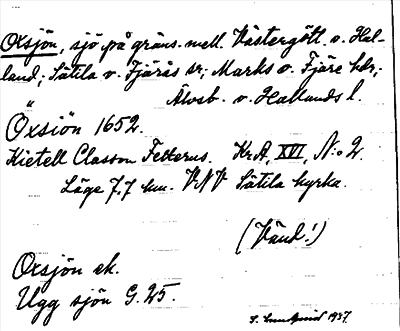 Oxsjön, sjö på gräns. mell. Västergötl. o. Hal-
land; Sätila o. Fjärås sr; Marks o. Fjäre hdr;
Älvsb. o. Hallands l.
Öxsiön 1652.
Kietell Classon Felterus. Kr A, XVI, No 2.
Läge 7,7 km. VNV Sätila kyrka.
(Vänd!)
Oxsjön ek.
Ugg sjön G. 25.
1937.